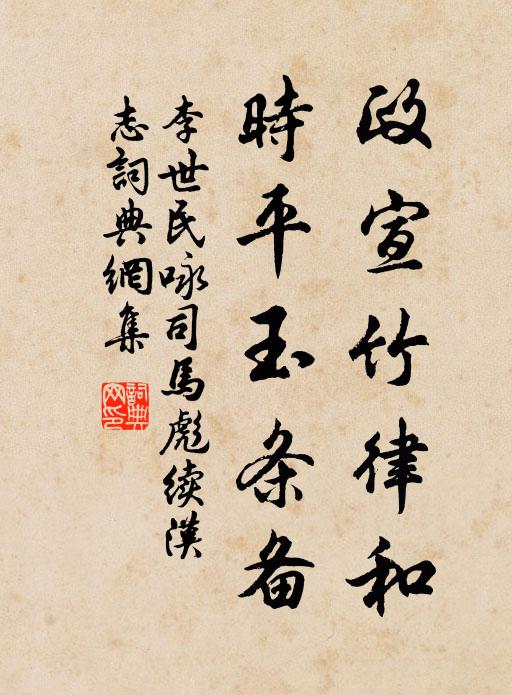 政宣竹律和
時平玉条备
李世民咏司馬彪续漢
志詞典網集
詞典网印